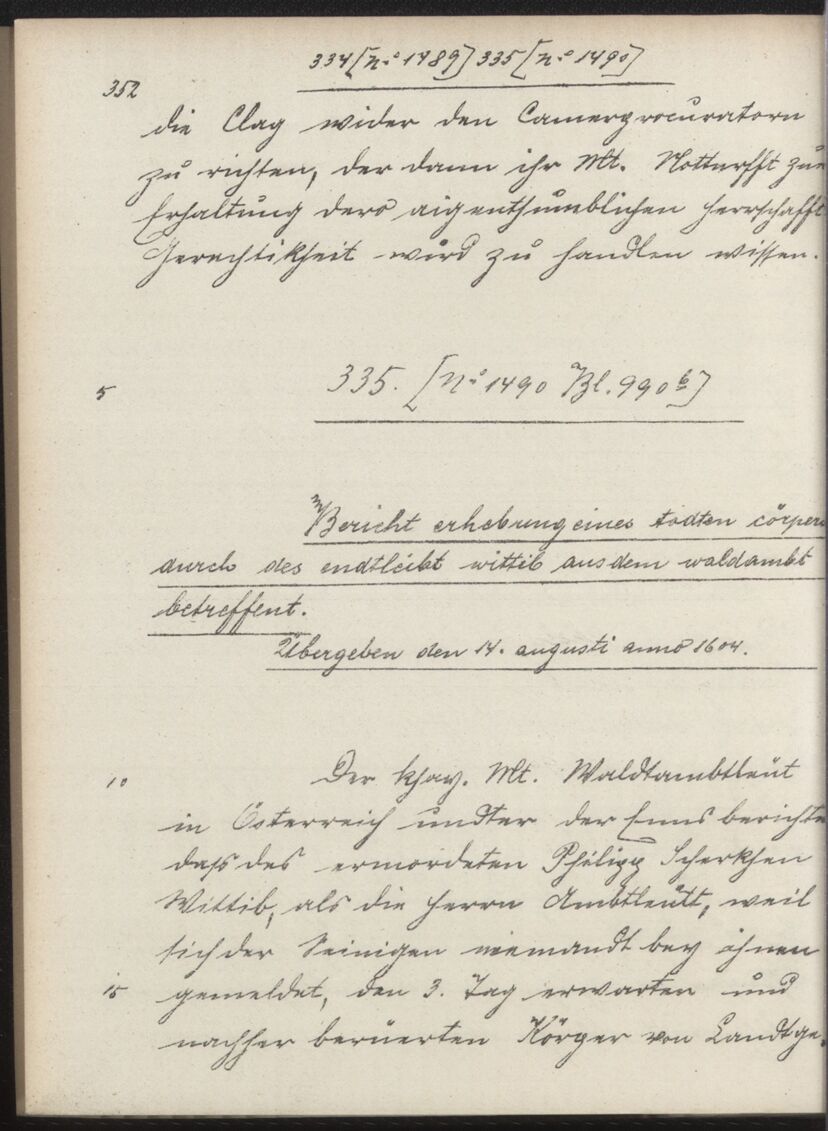 334 [No 1489] 335 [No 1490]
352
die Clag wider den Camerprocuratorn
zu richten, der dann ihr Mt. Notturfft zue
Erhaltung ders aigenthumblichen herrschafft
Gerechtikheit wird zu handlen wissen.
5
335. [No 1490 Bl. 990 b]
Bericht erhebung eines todten cörpers
durch des endtleibt wittib aus dem waldambt
betreffent.
Übergeben den 14. augusti anno 1604.
10 Der khay. Mt. Waldtambtleüt
in Österreich undter der Enns berichte
dass des ermordeten Philipp Scherkhen
Wittib, als die herrn Ambtleütt, weil
sich der Seinigen niemandt bey ihnen
15 gemeldet, den 3. Tag erwarten und
nachher berüerten Körper von Landtge-